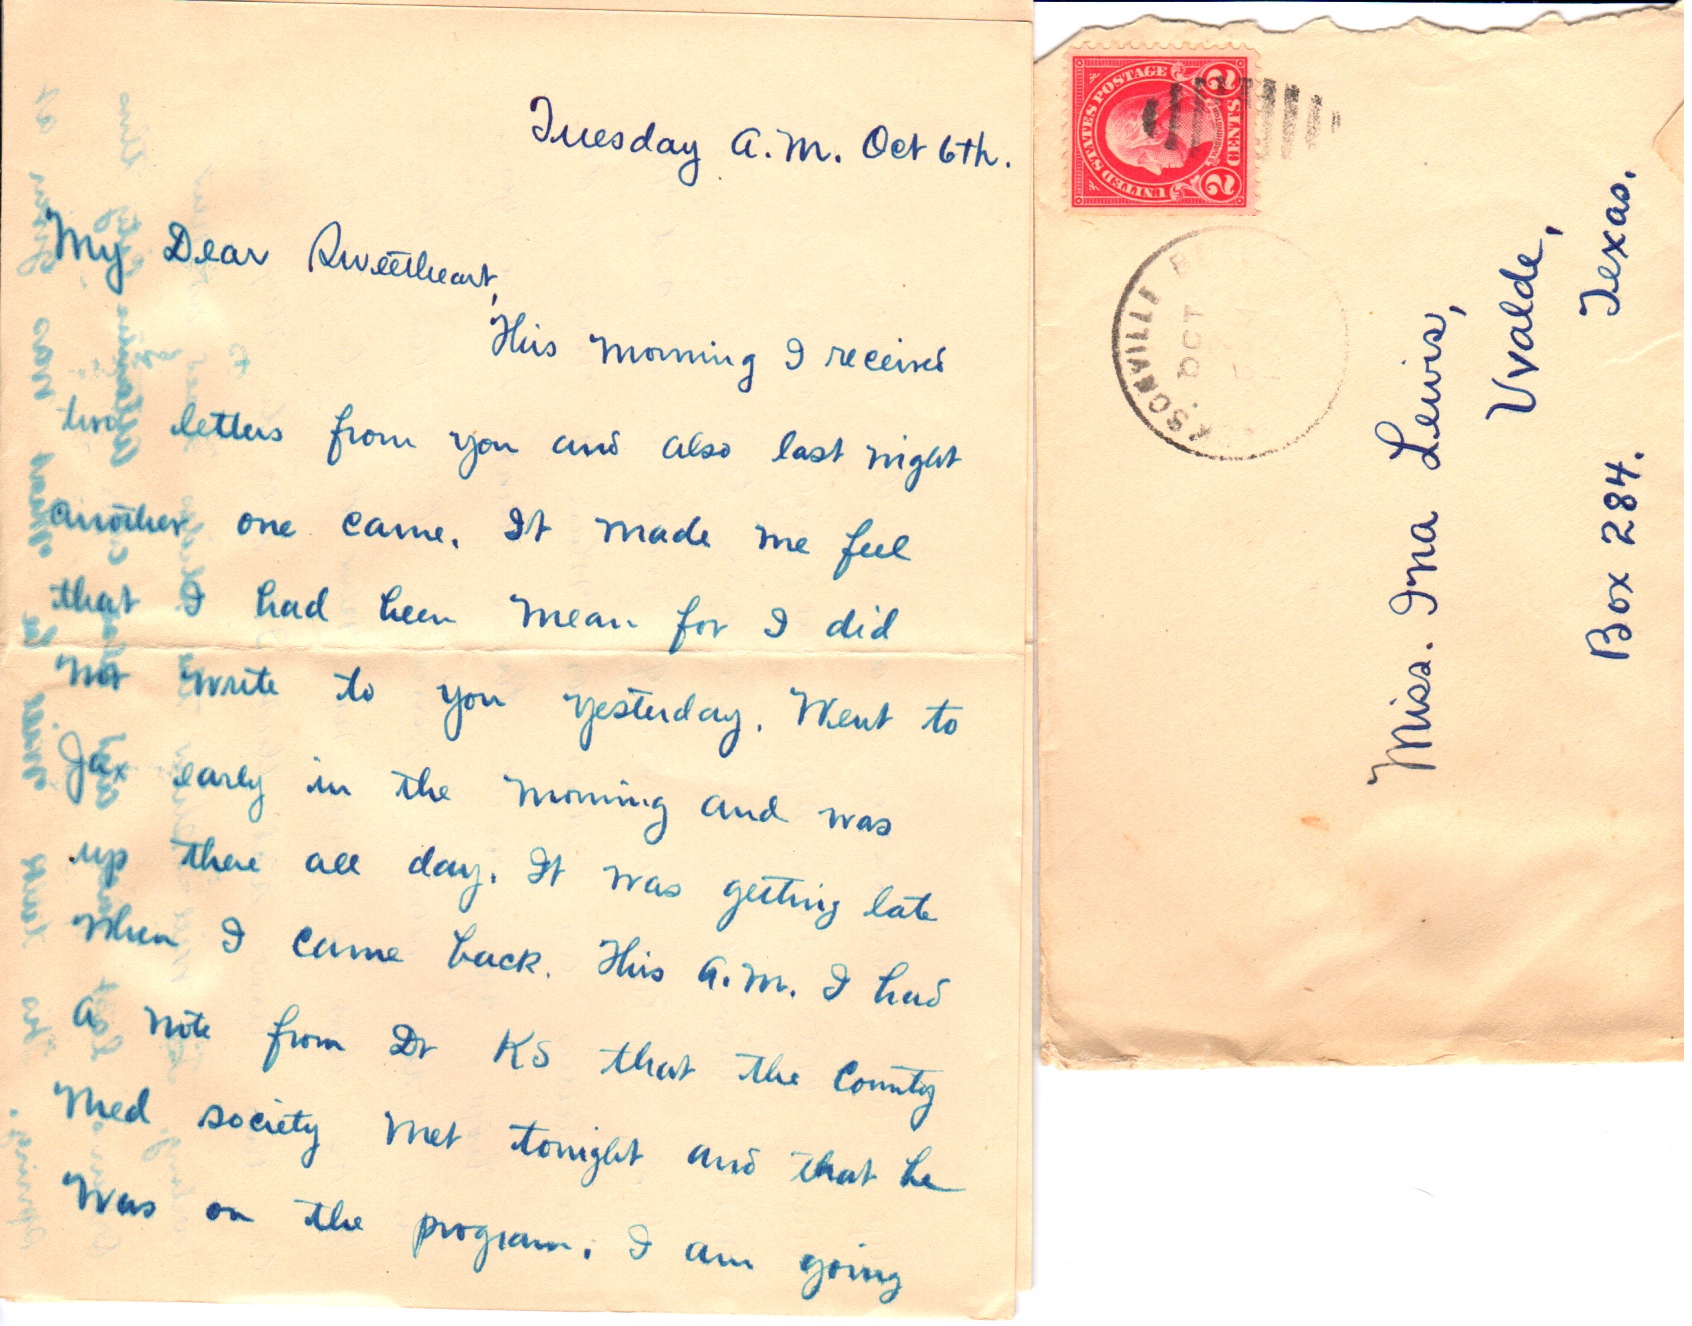 Tuesday A.M. Oct 6th.
My Dear Sweetheart,
This morning I received
two letters from you and also last night
another one came. It made me feel
that I had been mean for I did
not write to you yesterday. Went to
Jax early in the morning and was
up there all day. It was getting late
when I came back. This A.M. I had
a note from Dr KS that the County
Med society met tonight and that he
was on the program. I am going
UNITED STATES POSTAGE
2 CENTS 2
OCT
7
Miss. Ina Lewis,
Uvalde,
Box 284. Texas.